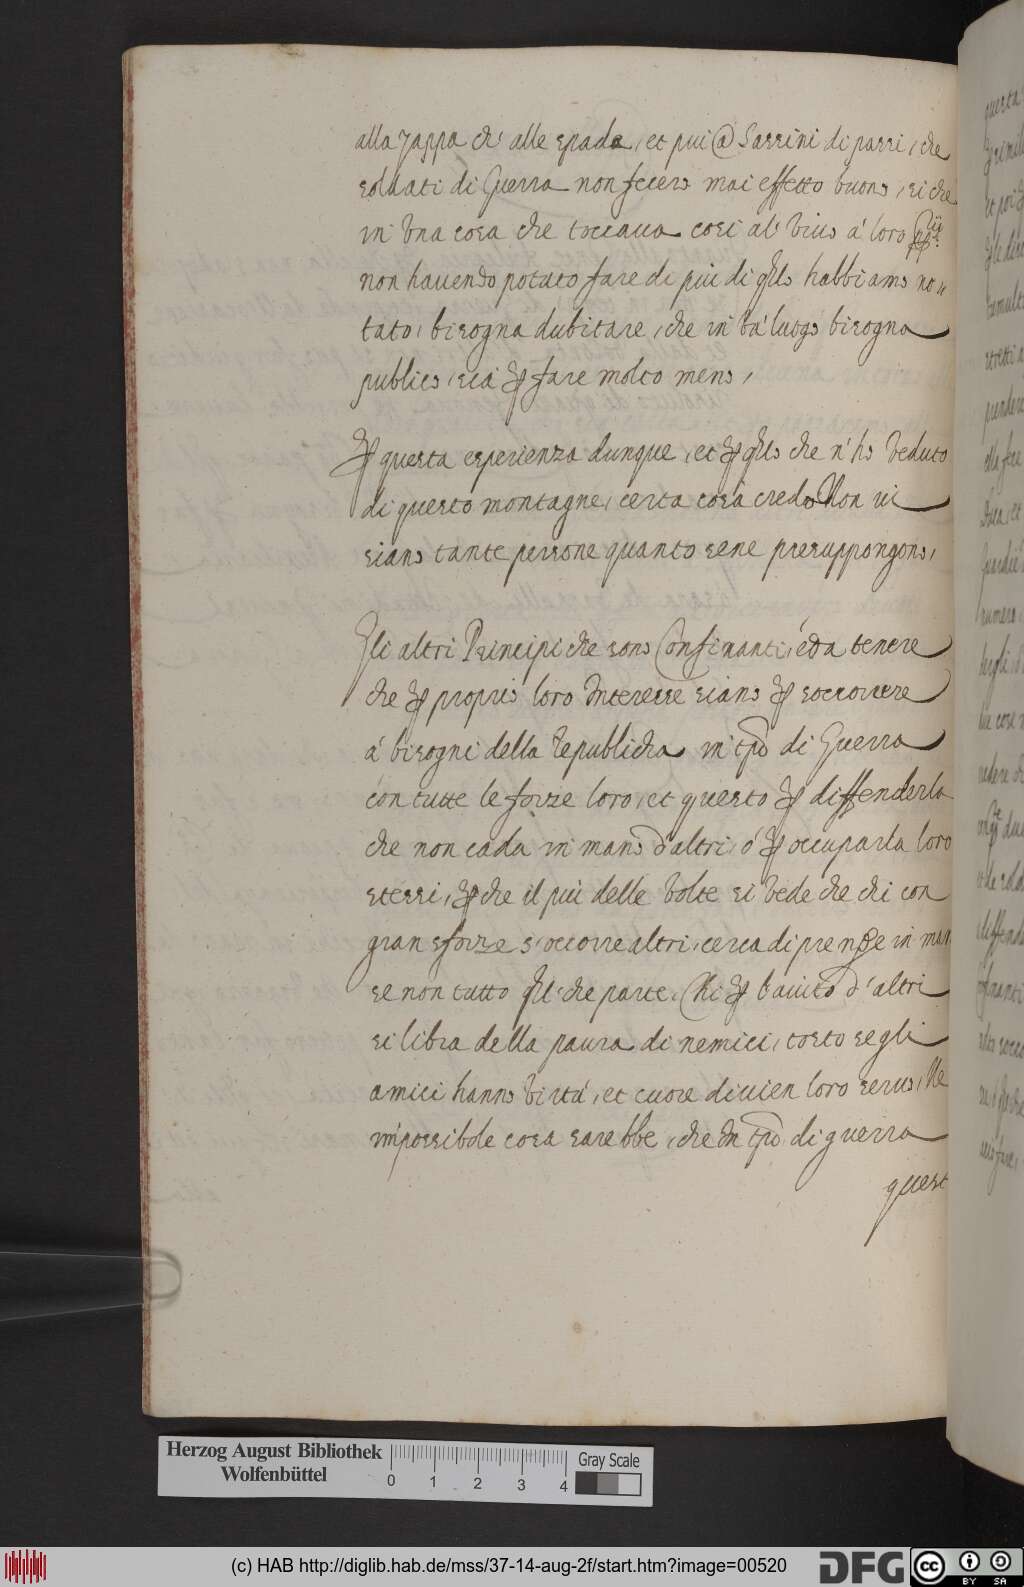 alla zappa ch' alle spade, et più @ Sassini di passi, che
soldati di Guerra non fecero mai effetto buono, si che
in una cosa che toccava così al' vivo à loro
non havendo potuto fare di più di qllo habbiamo no„
tato, bisogna dubitare, che in va' luogo bisogno
publico, sia ꝑ fare molto meno,
ꝑ questa esperienza dunque, et ꝑ qllo che n' ho veduto
di questo montagne, certa cosa credo Non vi
siano tante persone quanto sene presuppongono,
Gli altri Principi che sono Confinanti, é da tenere
che ꝑ proprio loro Interesse siano ꝑ soccorrere
á bisogni della Republicha in tpo di Guerra
con tutte le forze loro, et questo ꝑ diffenderla
che non cada in mano d'altri, ó ꝑ occuparla loro
stessi, ꝑche il più delle volte si vede che chi con
gran sforze s'occorre altri, cerca di prende in man
se non tutto qll' che parte, Chi ꝑ l'aiuto d'altri
si libra della paura di nemici, tosto se gli
amici hanno virtù, et cuore divien loro servo, Ne
impossibole cosa sarebbe, che In tpo di guerra
quest
Herzog August Bibliothek
Wolfenbüttel
0 1 2 3 4
Gray Scale
(c) HAB http://diglib.hab.de/mss/37-14-aug-2f/start.htm?image=00520
DFG
cc BY SA